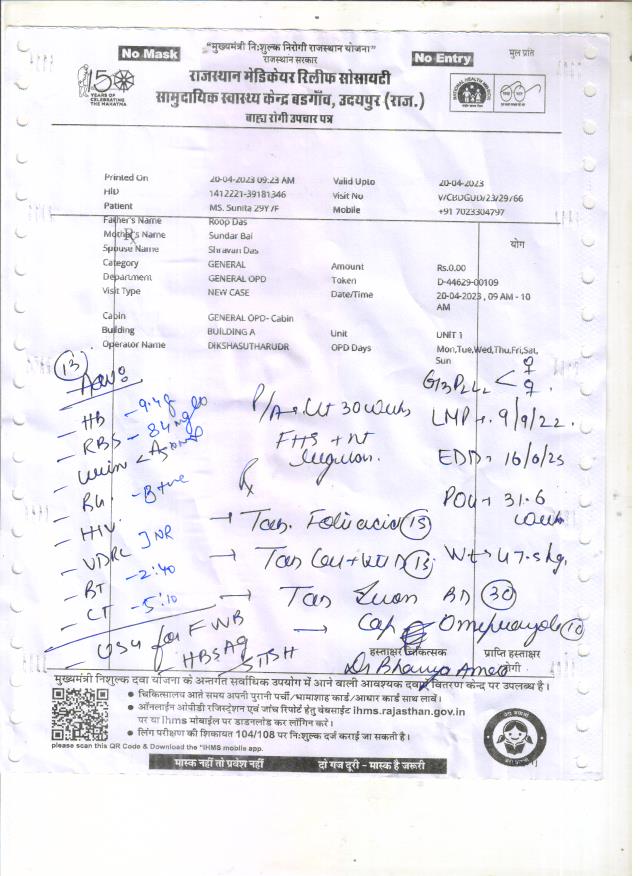 "मुख्यमंत्री निःशुल्क निरोगी राजस्थान योजना"
No Mask
राजस्थान सरकार
No Entry
मुल प्रति
राजस्थान मेडिकेयर रिलीफ सोसायटी
सामुदायिक स्वास्थ्य केन्द्र बडगाँव, उदयपुर (राज.)
बाह्य रोगी उपचार पत्र
150
YEARS OF
CELEBRATING
THE MAHATMA
Printed On 20-04-2023 09:23 AM Valid Upto 20-04-2023
HID 1412221-39181346 Visit No
Patient MS. Sunita 29Y /F Mobile +91 7023304797
Father's Name Roop Das
Mother's Name Sundar Bai
योग
Spouse Name Shravan Das
Category GENERAL Amount Rs.0.00
Department GENERAL OPD Token D-44629-00109
Visit Type NEW CASE Date/Time 20-04-2023 , 09 AM - 10
AM
Cabin GENERAL OPD- Cabin
Building BUILDING A Unit UNIT 1
Operator Name DIKSHASUTHARUDR OPD Days Mon,Tue,Wed,Thu,Fri,Sat,
Sun
13
HB - 9.4g
RBS - 84 mg
urine
BG - B+ve
HIV
VDRL NR
BT - 2:40
CT - 5:10
USG for FWB
HBsAg
STSH
P/A - Ut 30 weeks
FHS +nt
regular
LMP - 9/9/22
EDD - 16/6/23
POG - 31.6
week
Wt - 47.5 kg
Rx
→ Tab. Folic acid 15
→ Tab Cal + Vit D 15
→ Tab BD 30
→ Cap Omeprazole 10
हस्ताक्षर चिकित्सक
प्राप्ति हस्ताक्षर
रोगी
मुख्यमंत्री निशुल्क दवा योजना के अन्तर्गत सर्वाधिक उपयोग में आने वाली आवश्यक दवा वितरण केन्द्र पर उपलब्ध है।
• चिकित्सालय आते समय अपनी पुरानी पर्ची/भामाशाह कार्ड/आधार कार्ड साथ लावें।
• ऑनलाईन ओपीडी रजिस्ट्रेशन एवं जांच रिपोर्ट हेतु वेबसाईट ihms.rajasthan.gov.in
पर या Ihms मोबाईल पर डाउनलोड कर लॉगिन करें।
• लिंग परीक्षण की शिकायत 104/108 पर निःशुल्क दर्ज कराई जा सकती है।
please scan this QR Code & Download the "IHMS mobile app.
मास्क नहीं तो प्रवेश नहीं दो गज दूरी - मास्क है जरूरी